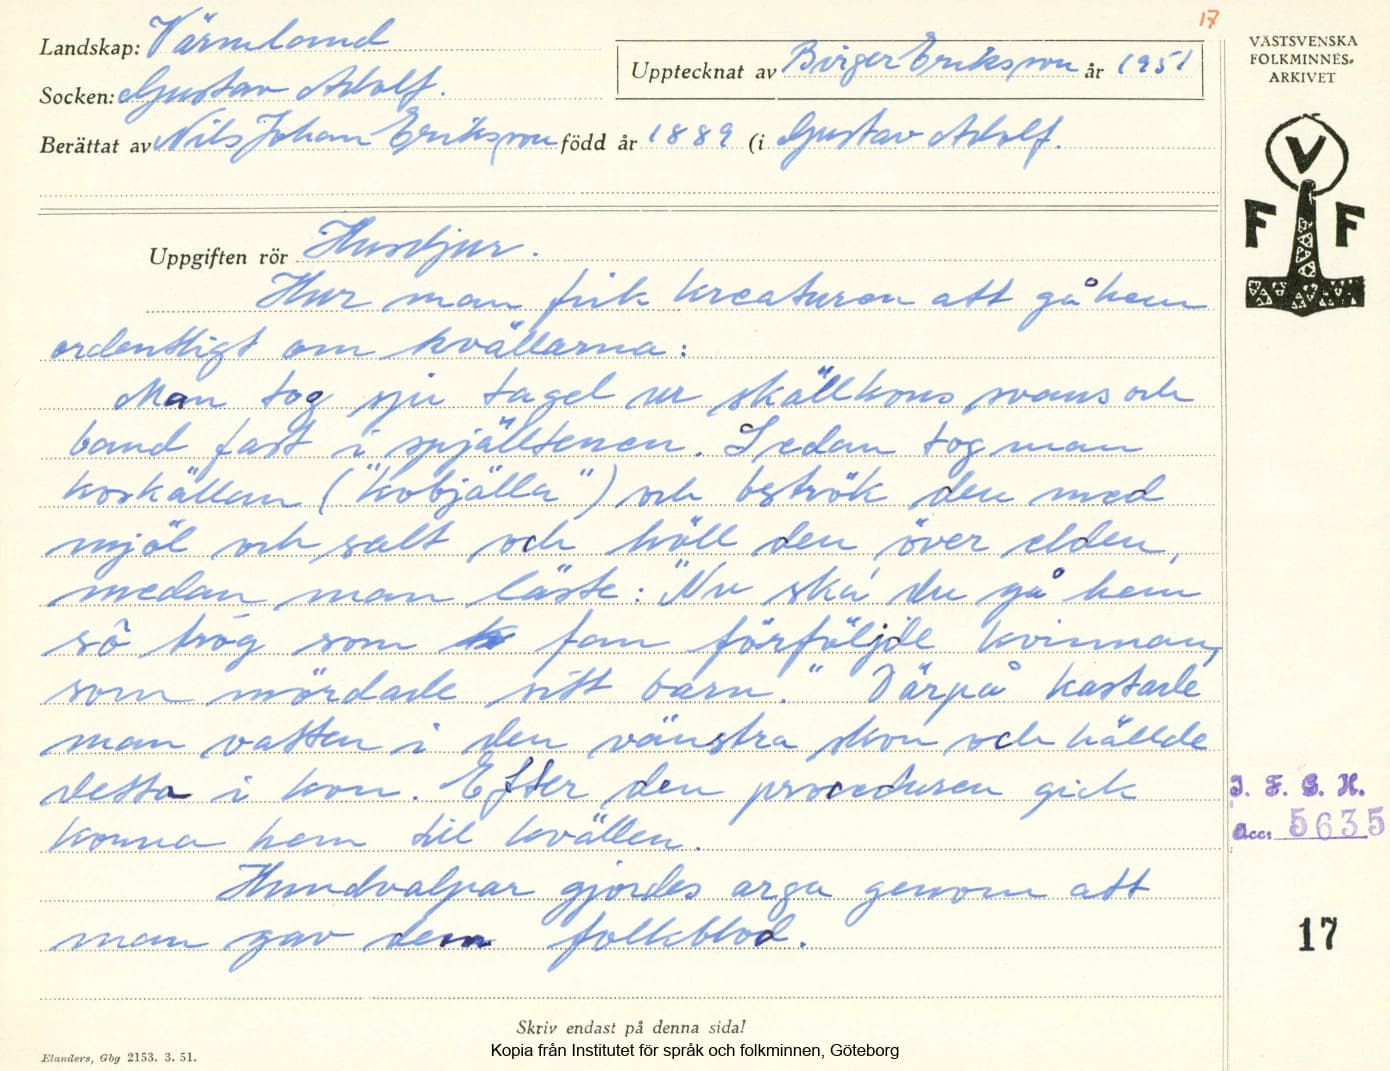 17
Landskap: Värmland
Upptecknat av Birger Eriksson år 1951
Socken: Gustav Adolf.
Berättat av Nils Johan Eriksson född år 1889 (i Gustav Adolf.
VÄSTSVENSKA
FOLKMINNES-
ARKIVET
V
F F
Uppgiften rör Husdjur.
Hur man fick kreaturen att gå hem
ordentligt om kvällarna:
Man tog sju tagel ur skällkons svans och
band fast i spjälltenen. Sedan tog man
koskällan ("kobjälla") och beströk den med
mjöl och salt och höll den över elden,
medan man läste: "Nu ska' du gå hem
så trög som fan förföljde kvinnan,
som mördade sitt barn." Därpå kastade
man vatten i den vänstra skon och hällde
detta i kon. Efter den proceduren gick
korna hem till kvällen.
Hundvalpar gjordes arga genom att
man gav dem folkblod.
I. F. G. H.
Acc: 5635
17
Skriv endast på denna sida!
Elanders, Gbg 2153. 3. 51.
Kopia från Institutet för språk och folkminnen, Göteborg